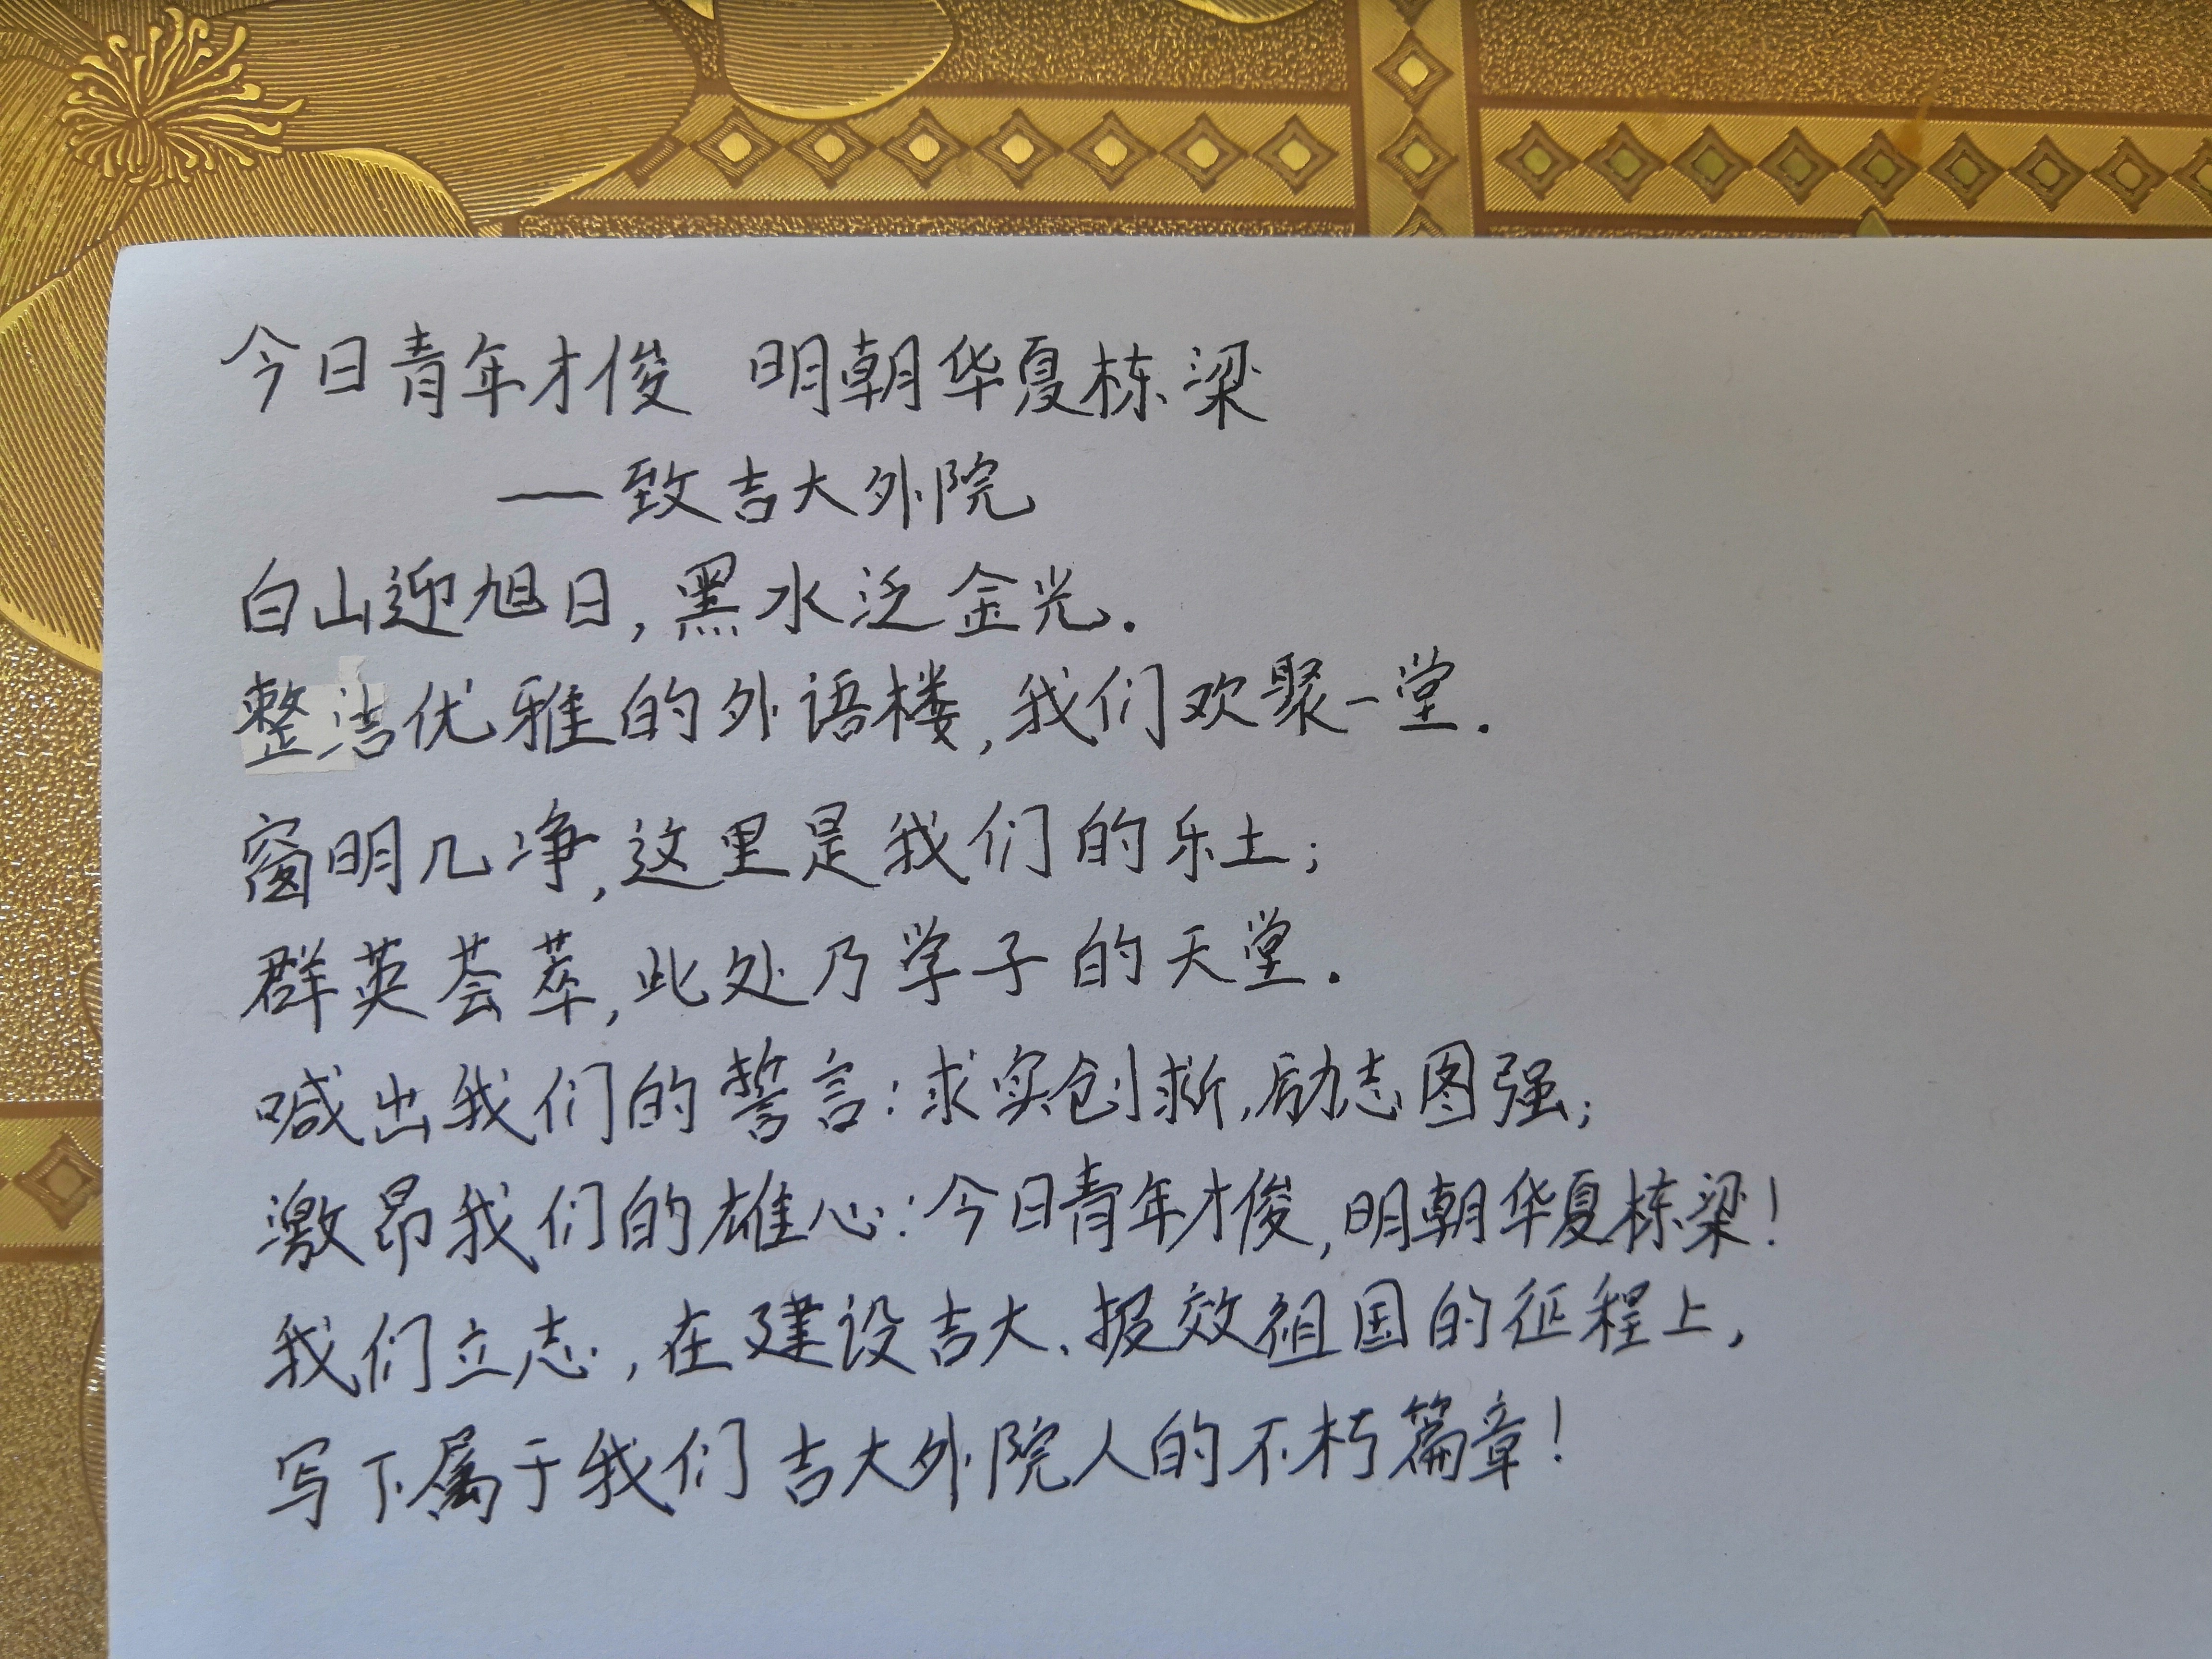 今日青年才俊 明朝华夏栋梁
——致吉大外院
白山迎旭日,黑水泛金光.
整洁优雅的外语楼,我们欢聚一堂.
窗明几净,这里是我们的乐土;
群英荟萃,此处乃学子的天堂.
喊出我们的誓言:求实创新,励志图强;
激昂我们的雄心:今日青年才俊,明朝华夏栋梁!
我们立志,在建设吉大、报效祖国的征程上,
写下属于我们吉大外院人的不朽篇章!